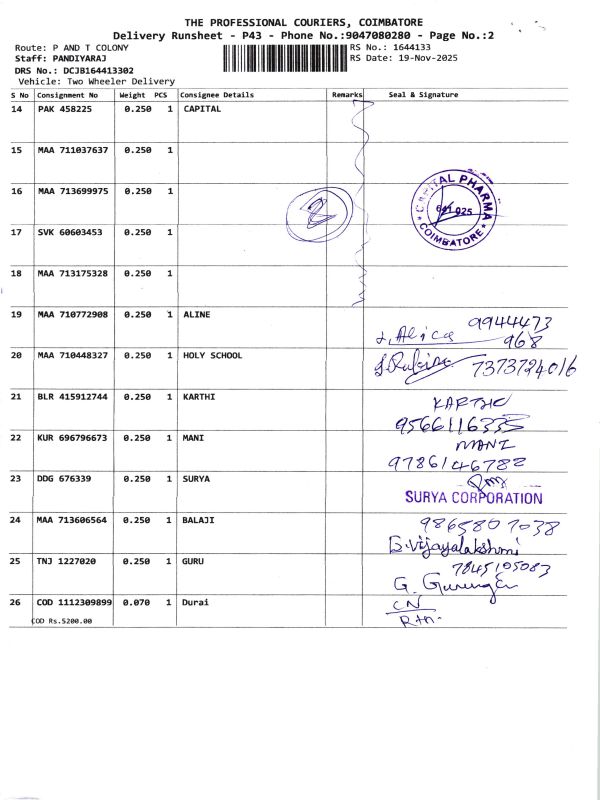 THE PROFESSIONAL COURIERS, COIMBATORE
Delivery Runsheet - P43 - Phone No.:9047080280 - Page No.:2
Route: P AND T COLONY RS No.: 1644133
Staff: PANDIYARAJ RS Date: 19-Nov-2025
DRS No.: DCJB164413302
Vehicle: Two Wheeler Delivery
S No Consignment No Weight PCS Consignee Details Remarks Seal & Signature
14 PAK 458225 0.250 1 CAPITAL
15 MAA 711037637 0.250 1
16 MAA 713699975 0.250 1
CAPITAL PHARMA
641 025
COIMBATORE
17 SVK 60603453 0.250 1
18 MAA 713175328 0.250 1
19 MAA 710772908 0.250 1 ALINE
9944473
J. Alice 968
20 MAA 710448327 0.250 1 HOLY SCHOOL
7373724016
21 BLR 415912744 0.250 1 KARTHI
KARTHIC
9566116335
22 KUR 696796673 0.250 1 MANI
MANI
9786146782
23 DDG 676339 0.250 1 SURYA
SURYA CORPORATION
24 MAA 713606564 0.250 1 BALAJI
9865807038
B.Vijayalakshmi
25 TNJ 1227020 0.250 1 GURU
7845105083
G.
26 COD 1112309899 0.070 1 Durai
CN
Rtn-
COD Rs.5200.00